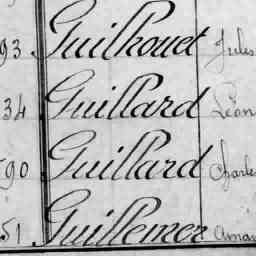 93 Guilhouet Jules
34 Guillard Léon
590 Guillard Charles
51 Guillemer